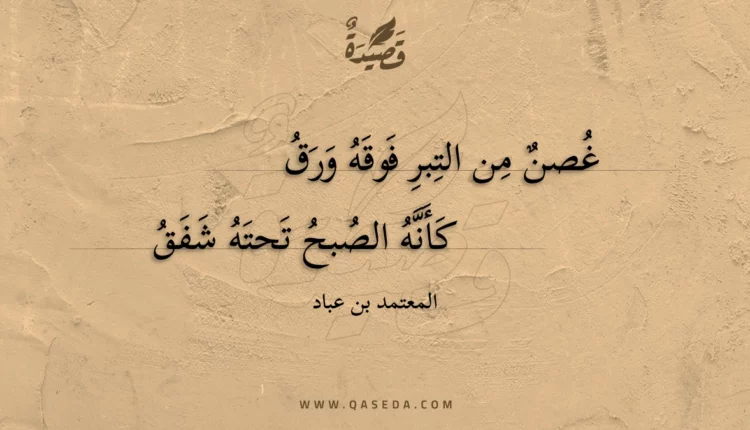 قَصِيْدَةٌ
غُصنٌ مِن التِبرِ فَوقَهُ وَرَقُ
كَأَنَّهُ الصُبحُ تَحتَهُ شَفَقُ
المعتمد بن عباد
WWW.QASEDA.COM